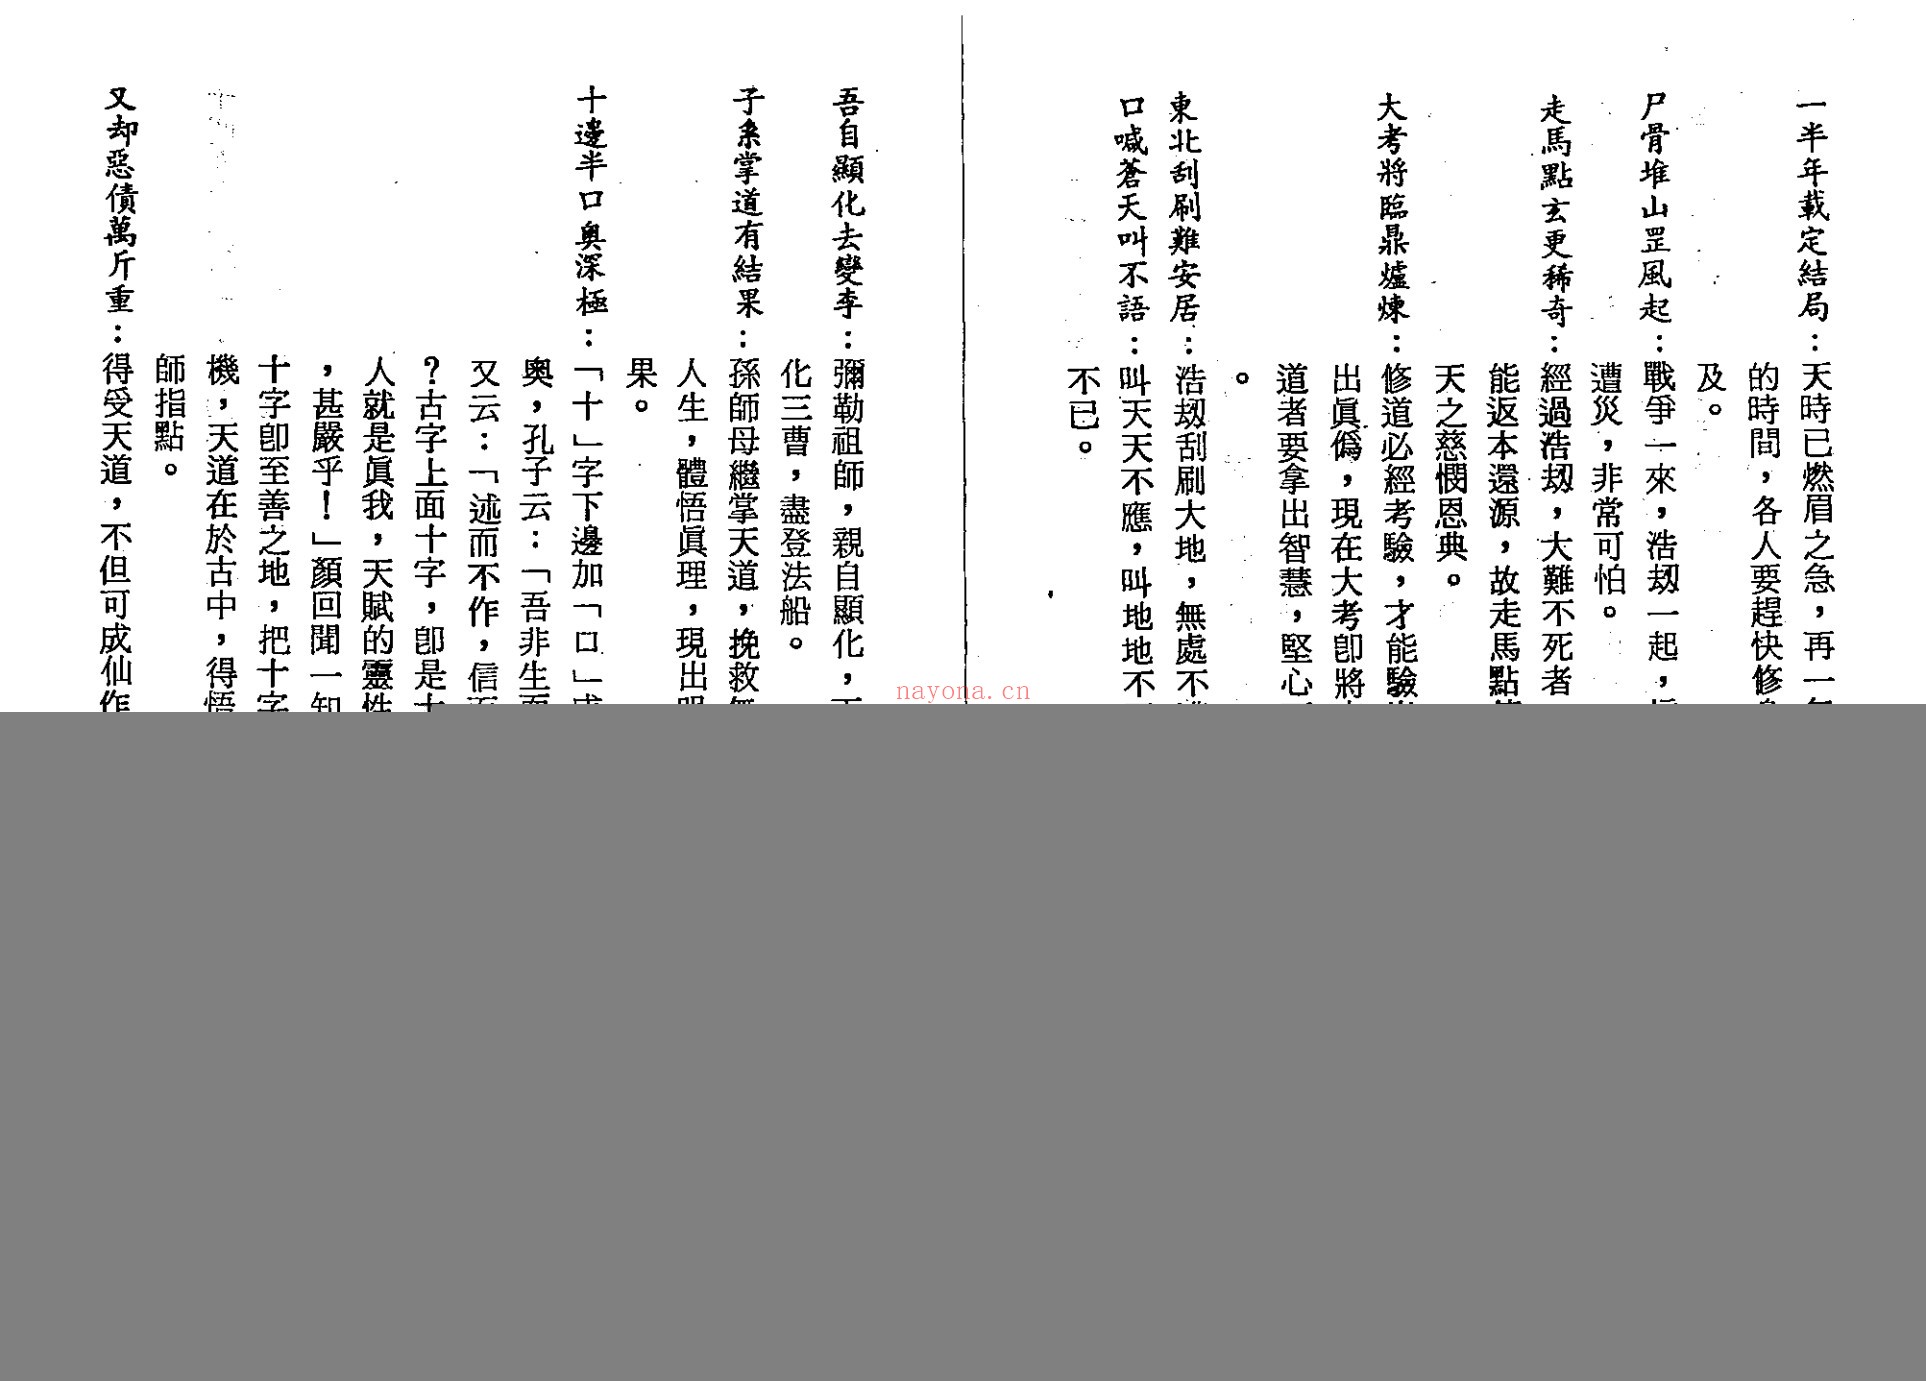 一半年載定結局：天時已燃眉之急，再一
的時間，各人要趕快修
及。
尸骨堆山罡風起：戰爭一來，浩刼一起，
遭災，非常可怕。
走馬點玄更稀奇：經過浩刼，大難不死者
能返本還源，故走馬點
天之慈憫恩典。
大考將臨鼎爐煉：修道必經考驗，才能驗
出眞僞，現在大考卽將
道者要拿出智慧，堅心
。
東北刮刷難安居：浩刼刮刷大地，無處不
口喊蒼天叫不語：叫天天不應，叫地地不
不已。
吾自顯化去變李：彌勒祖師，親自顯化，
化三曹，盡登法船。
子系掌道有結果：孫師母繼掌天道，挽救
人生，體悟眞理，現出
果。
十邊半口奥深極：「十」字下邊加「口」
奧，孔子云：「吾非生而
又云：「述而不作，信而
？古字上面十字，卽是十
人就是眞我，天賦的靈性
，甚嚴乎！」顏回聞一知
十字卽至善之地，把十字
機，天道在於古中，得悟
師指點。
又却惡債萬斤重：得受天道，不但可成仙作
nayona.cn